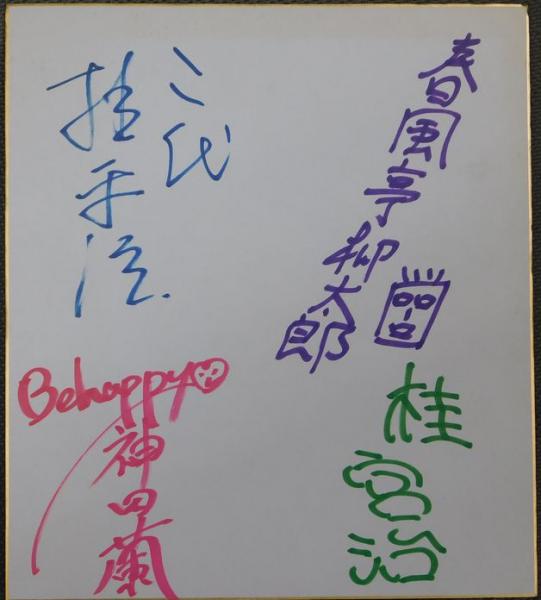 春風亭柳太郎
桂宮治
二代
桂平治
Be happy
神田蘭